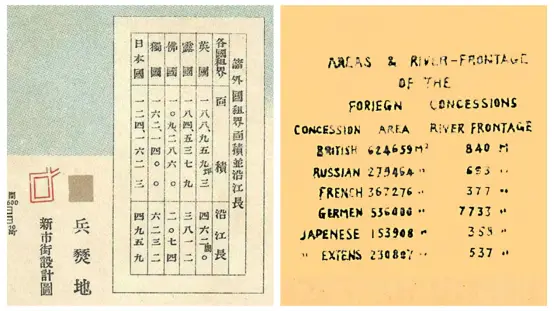 諸外國租界面積並沿江長
各國租界 面積 沿江長
英國 一八八、九五九坪三 四六二間
露國 一八四、五三七九 三八一二
佛國 一〇九、二八六〇 二〇七四
獨國 一六二、一四〇〇 六二三二
日本國 一二四、一六二三 四九五九
兵燹地
新市街設計圖
AREAS & RIVER-FRONTAGE
OF THE
FORIEGN CONCESSIONS
CONCESSION AREA RIVER FRONTAGE
BRITISH 624659 M² 840 M
RUSSIAN 279464 " 693 "
FRENCH 367276 " 377 "
GERMEN 536000 " 7733 "
JAPENESE 153908 " "
" EXTENS 230807 " 537 "